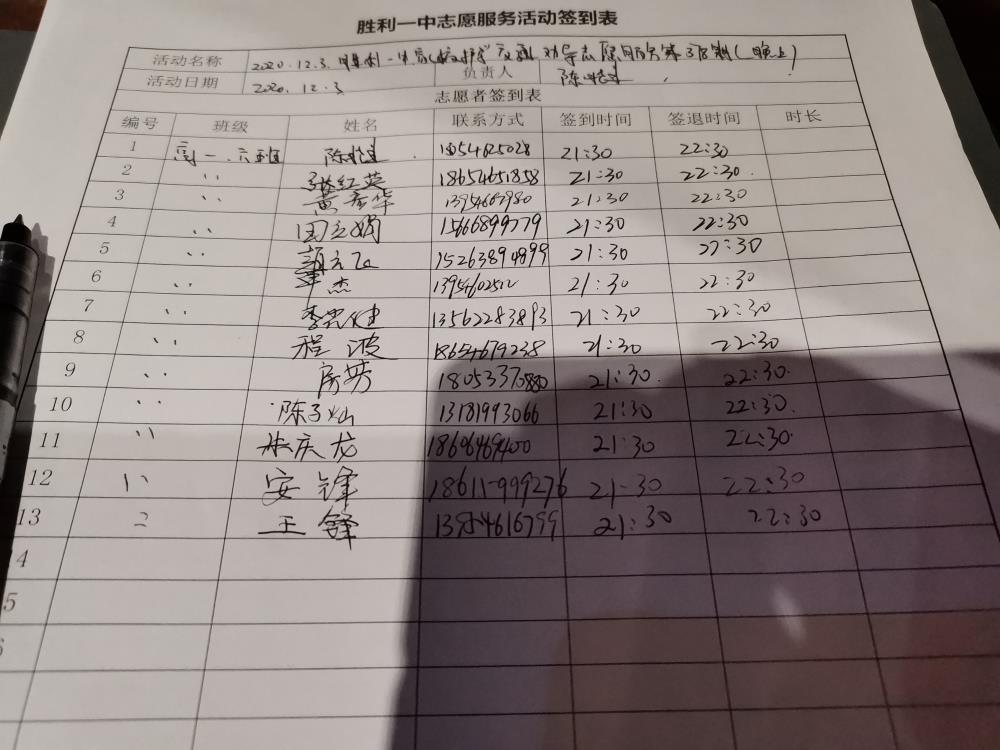 胜利一中志愿服务活动签到表
活动名称 2020.12.3 胜利一中 交通劝导志愿服务第3周期(晚上)
活动日期 2020.12.3 负责人 陈
志愿者签到表
编号 班级 姓名 联系方式 签到时间 签退时间 时长
1 高一.六班 陈 21:30 22:30
2 〃 张红英 18654651858 21:30 22:30
3 〃 黄彦华 21:30 22:30
4 〃 国立娟 15666899779 21:30 22:30
5 〃 15263894899 21:30 22:30
6 〃 杰 21:30 22:30
7 〃 李 健 13562283893 21:30 22:30
8 〃 程波 18654679238 21:30 22:30
9 〃 房芳 21:30 22:30
10 〃 陈子灿 13181993066 21:30 22:30
11 〃 张庆龙 21:30 22:30
12 〃 安锋 18611999276 21:30 22:30
13 〃 王锋 21:30 22:30
4
5